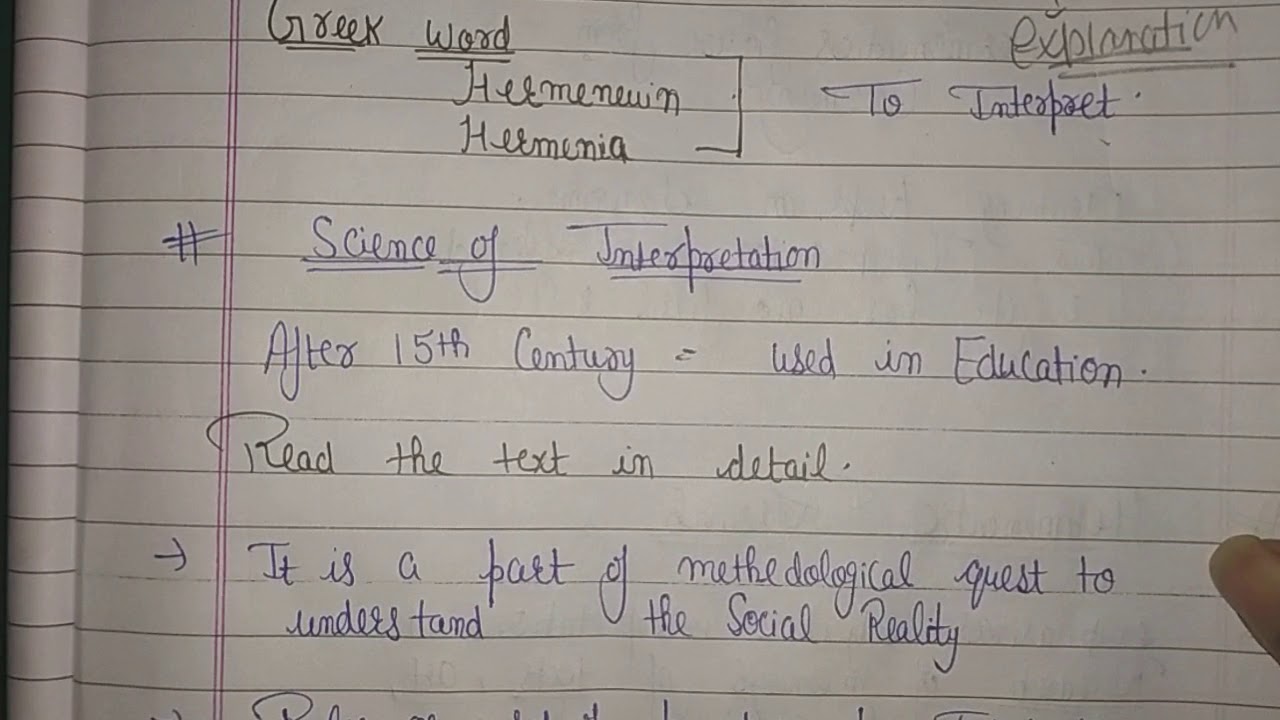 Greek Word
explanation
Hermeneuin
To Interpret.
Hermenia
# Science of Interpretation
After 15th Century = used in Education.
Read the text in detail.
→ It is a part of methedological quest to
understand the Social Reality
→